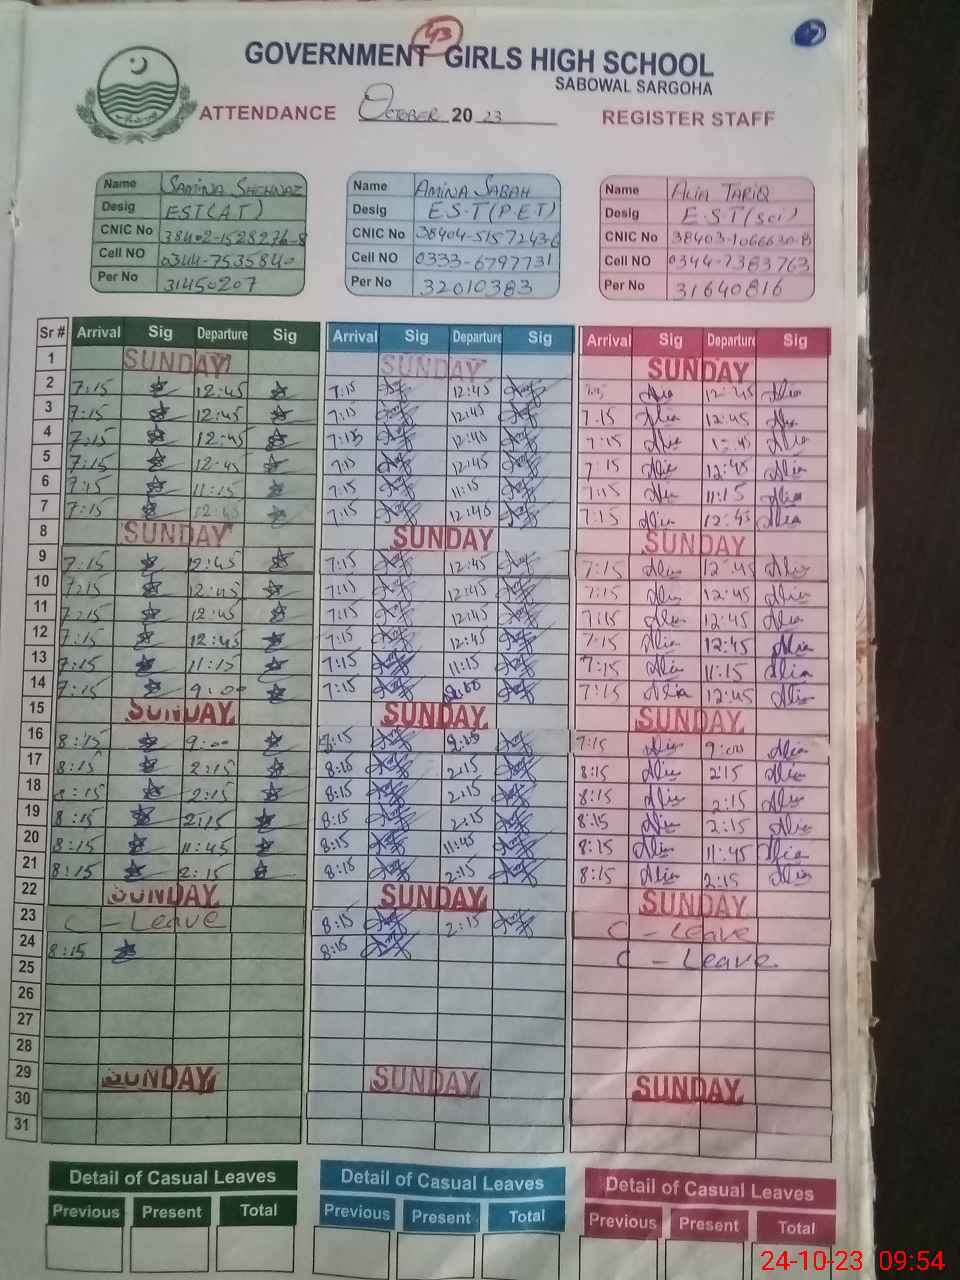 43
GOVERNMENT GIRLS HIGH SCHOOL
SABOWAL SARGOHA
ATTENDANCE October 20 23 REGISTER STAFF
Name SAMINA SHEHNAZ Name AMINA SABAH Name ALIA TARIQ
Desig EST(A.T) Desig E.S.T(P.E.T) Desig E.S.T(Sci)
CNIC No 38402-1528276-8 CNIC No 38404-5157243-6 CNIC No
Cell NO 0344-7535840 Cell NO 0333-6797731 Cell NO 0344-7383763
Per No 31450207 Per No 32010383 Per No 31640816
Sr # Arrival Sig Departure Sig Arrival Sig Departure Sig Arrival Sig Departure Sig
1 SUNDAY SUNDAY SUNDAY
2 7:15 12:45 7:15 12:45 12:45 Alia
3 7:15 12:45 7:15 12:45 7:15 Alia 12:45 Alia
4 7:15 12:45 7:15 12:45 7:15 Alia Alia
5 7:15 12:45 7:15 12:45 7:15 Alia 12:45 Alia
6 7:15 11:15 7:15 11:15 7:15 Alia 11:15 Alia
7 7:15 12:45 7:15 12:45 7:15 Alia 12:45 Alia
8 SUNDAY SUNDAY SUNDAY
9 7:15 12:45 7:15 12:45 7:15 Alia 12:45 Alia
10 7:15 12:45 7:15 12:45 7:15 Alia 12:45 Alia
11 7:15 12:45 7:15 12:45 7:15 Alia 12:45 Alia
12 7:15 12:45 7:15 12:45 7:15 Alia 12:45 Alia
13 7:15 11:15 7:15 11:15 7:15 Alia 11:15 Alia
14 7:15 9:00 7:15 7:15 Alia 12:45 Alia
15 SUNDAY SUNDAY SUNDAY
16 8:15 9:00 7:15 Alia 9:00 Alia
17 8:15 2:15 8:15 2:15 8:15 Alia 2:15 Alia
18 8:15 2:15 8:15 2:15 8:15 Alia 2:15 Alia
19 8:15 2:15 8:15 2:15 8:15 Alia 2:15 Alia
20 8:15 11:45 8:15 11:45 8:15 Alia 11:45 Alia
21 8:15 2:15 8:15 2:15 8:15 Alia 2:15 Alia
22 SUNDAY SUNDAY SUNDAY
23 C - Leave 8:15 2:15 C - Leave
24 8:15 8:15 C - Leave
25
26
27
28
29 SUNDAY SUNDAY SUNDAY
30
31
Detail of Casual Leaves Detail of Casual Leaves Detail of Casual Leaves
Previous Present Total Previous Present Total Previous Present Total
24-10-23 09:54